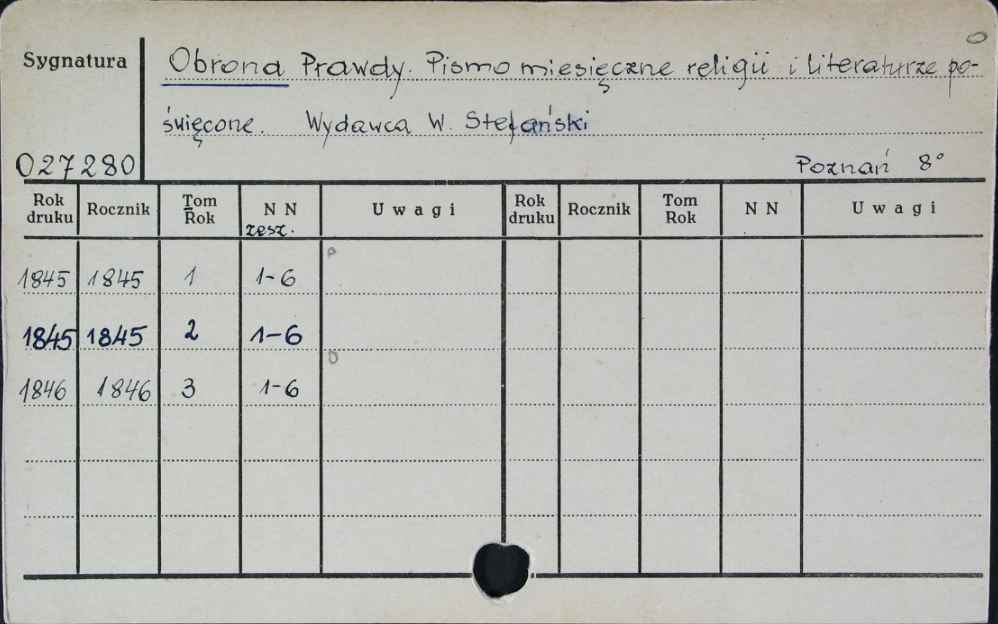 Sygnatura
Obrona Prawdy. Pismo miesięczne religii i literaturze po-
święcone. Wydawca W. Stefański
027280
Poznań 8°
Rok druku Rocznik Tom Rok N N zesz. Uwagi Rok druku Rocznik Tom Rok N N Uwagi
1845 1845 1 1-6
1845 1845 2 1-6
1846 1846 3 1-6